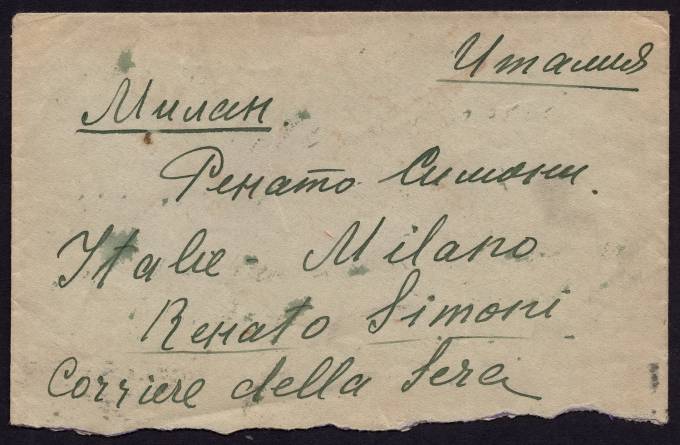 Италия
Милан
Ренато Симони.
Italie - Milano
Renato Simoni
Corriere della Sera